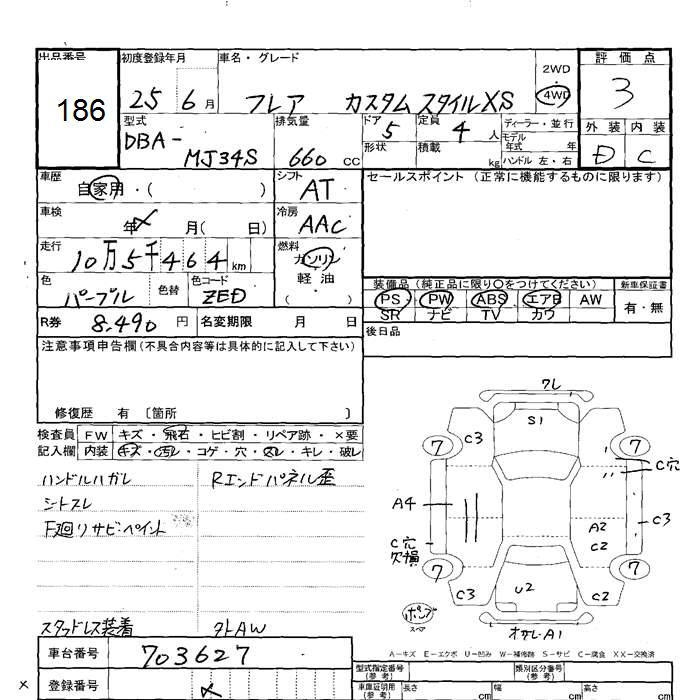 出品番号 初度登録年月 車名・グレード 2WD 評価点
186 25 6月 フレア カスタムスタイルXS 4WD 3
型式 排気量 ドア 定員 ディーラー・並行 外装 内装
DBA- 5 4人 モデル年式 年
MJ34S 660cc 形状 積載 kg ハンドル 左・右 D C
車歴 シフト セールスポイント(正常に機能するものに限ります)
自家用・( ) AT
車検 冷房
年 月( 日) AAC
走行 燃料
10万5千464km ガソリン
色 色替 色コード 軽油 装備品(純正品に限り○をつけてください) 新車保証書
パープル ZED ( ・ ) PS PW ABS エアB AW 有・無
R券 8,490円 名変期限 月 日 SR ナビ TV カワ
後日品
注意事項申告欄(不具合内容等は具体的に記入して下さい)
修復歴 有 〔箇所 〕
検査員 FW キズ・飛石・ヒビ割・リペア跡・×要
記入欄 内装 キズ・汚レ・コゲ・穴・スレ・キレ・破レ
ハンドルハガレ Rエンドパネル歪
シートスレ
下廻りサビ・ペイント
スタッドレス装着 外AW
ワレ
S1
C3
7 7
C穴
A4 C3
A2
C穴 C2
欠損
7 7
C3 U2 C2
ポンプ
スペア オサレ・A1
A-キズ E-エクボ U-凹み W-補修跡 S-サビ C-腐食 XX-交換済
車台番号 703627 型式指定番号(参考) 類別区分番号(参考)
× 登録番号 車庫証明用(参考) 長さ cm 幅 cm 高さ cm